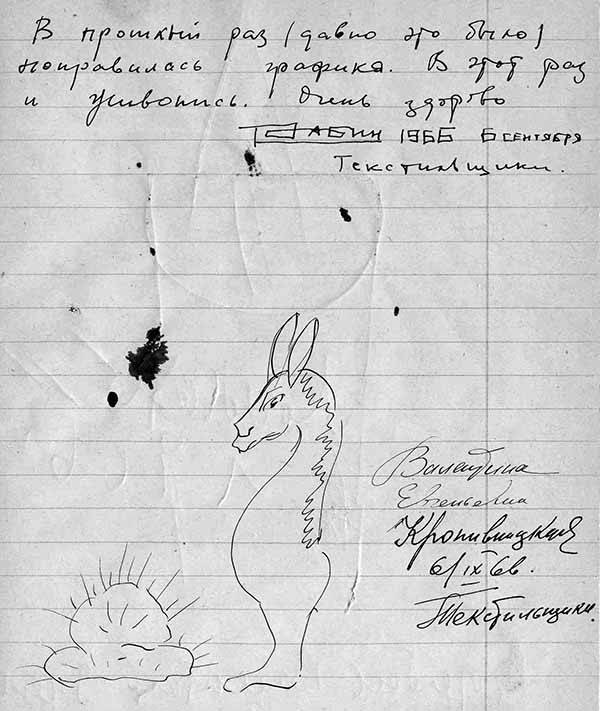 В прошлый раз (давно это было)
понравилась графика. В этот раз
и живопись. Очень здорово
РАБИН 1966 6 СЕНТЯБРЯ
Текстильщики.
Валентина
Евгеньевна
Кропивницкая
6/IX 66.
Текстильщики.